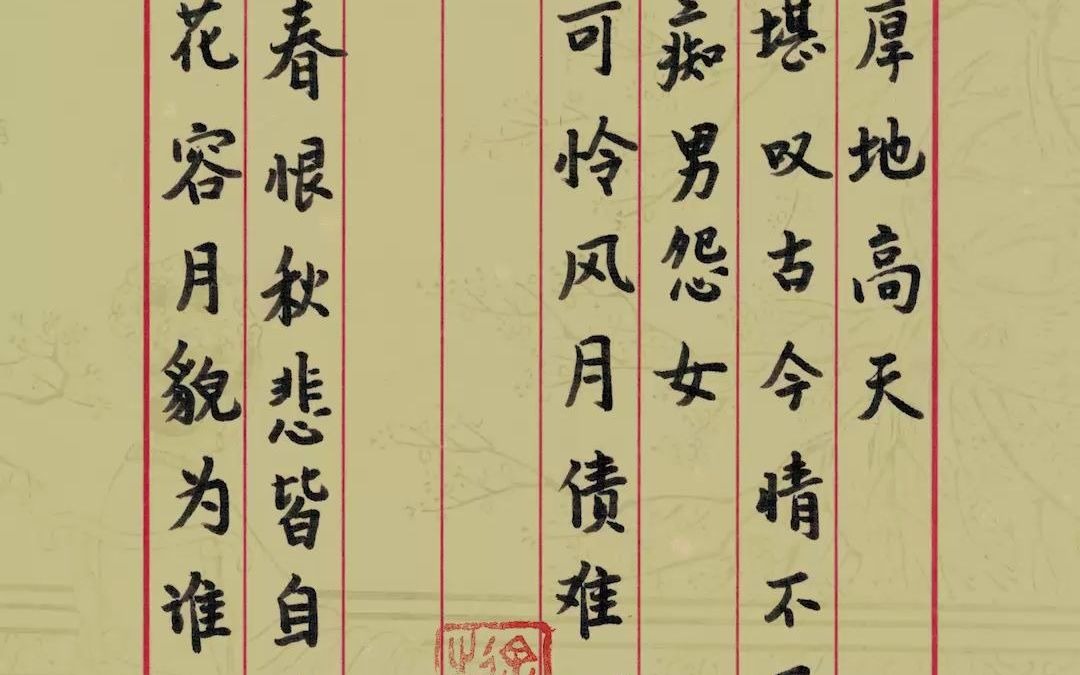 厚地高天
堪叹古今情不
痴男怨女
可怜风月债难
春恨秋悲皆自
花容月貌为谁